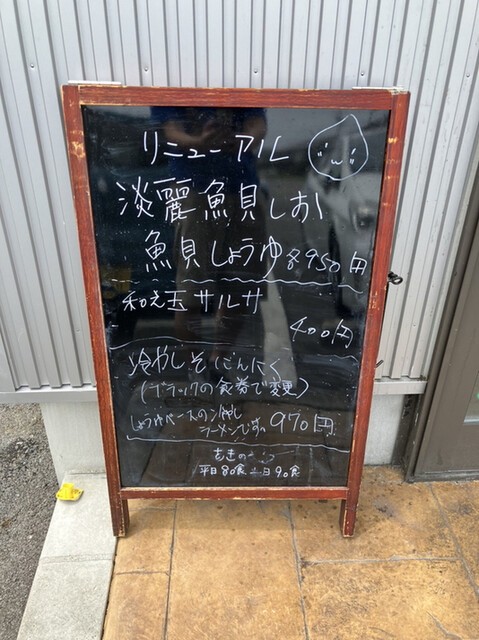 リニューアル
淡麗魚貝しお
魚貝しょうゆ各950円
和え玉サルサ
400円
冷やしそにんにく
(ブラックの食券で変更)
しょうゆベースの冷やし
ラーメンです。 970円
平日80食 土日90食